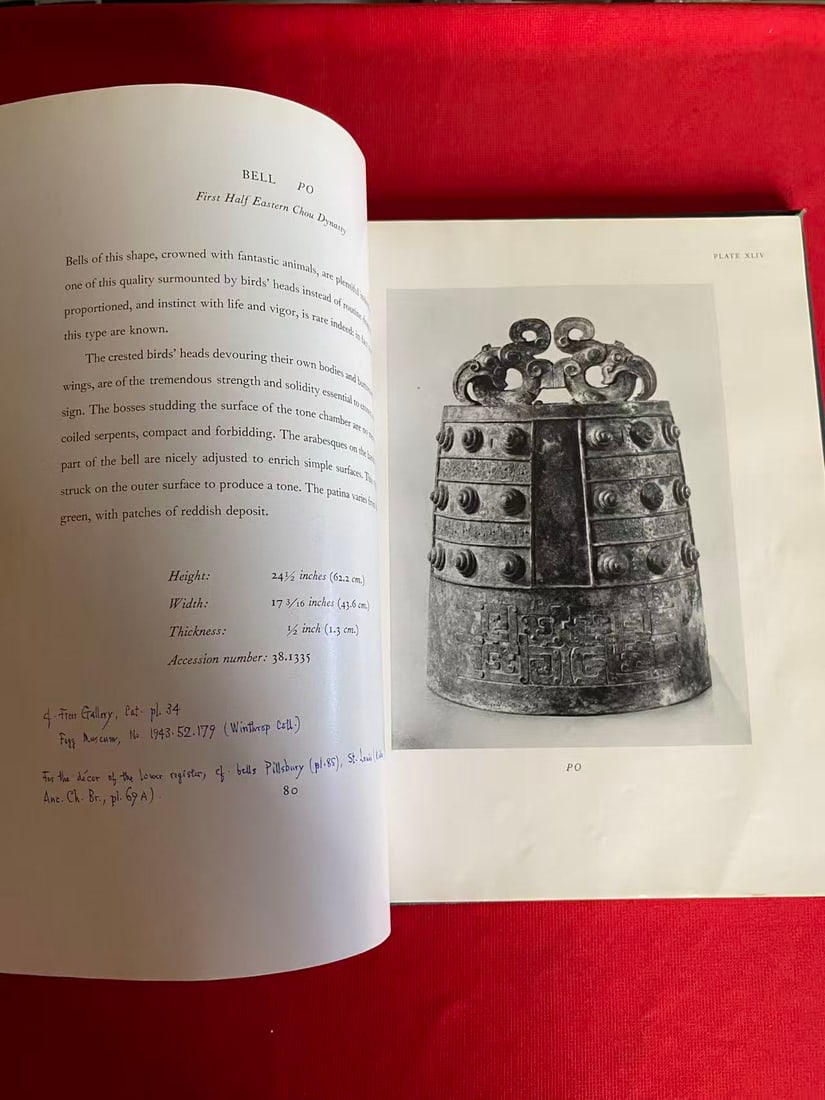 BELL PO
First Half Eastern Chou Dynasty
Bells of this shape, crowned with fantastic animals, are plentiful
one of this quality surmounted by birds' heads instead of routine
proportioned, and instinct with life and vigor, is rare indeed: in
this type are known.
The crested birds' heads devouring their own bodies and
wings, are of the tremendous strength and solidity essential to
sign. The bosses studding the surface of the tone chamber are
coiled serpents, compact and forbidding. The arabesques on the
part of the bell are nicely adjusted to enrich simple surfaces.
struck on the outer surface to produce a tone. The patina varies
green, with patches of reddish deposit.
Height: 24½ inches (62.2 cm.)
Width: 17 3/16 inches (43.6 cm.)
Thickness: ½ inch (1.3 cm.)
Accession number: 38.1335
cf. Freer Gallery, Cat. pl. 34
Fogg Museum, No. 1943.52.179 (Winthrop Coll.)
For the décor of the lower register, cf. bells Pillsbury (pl. 85), St. Louis
Anc. Ch. Br., pl. 69 A).
80
PLATE XLIV
PO